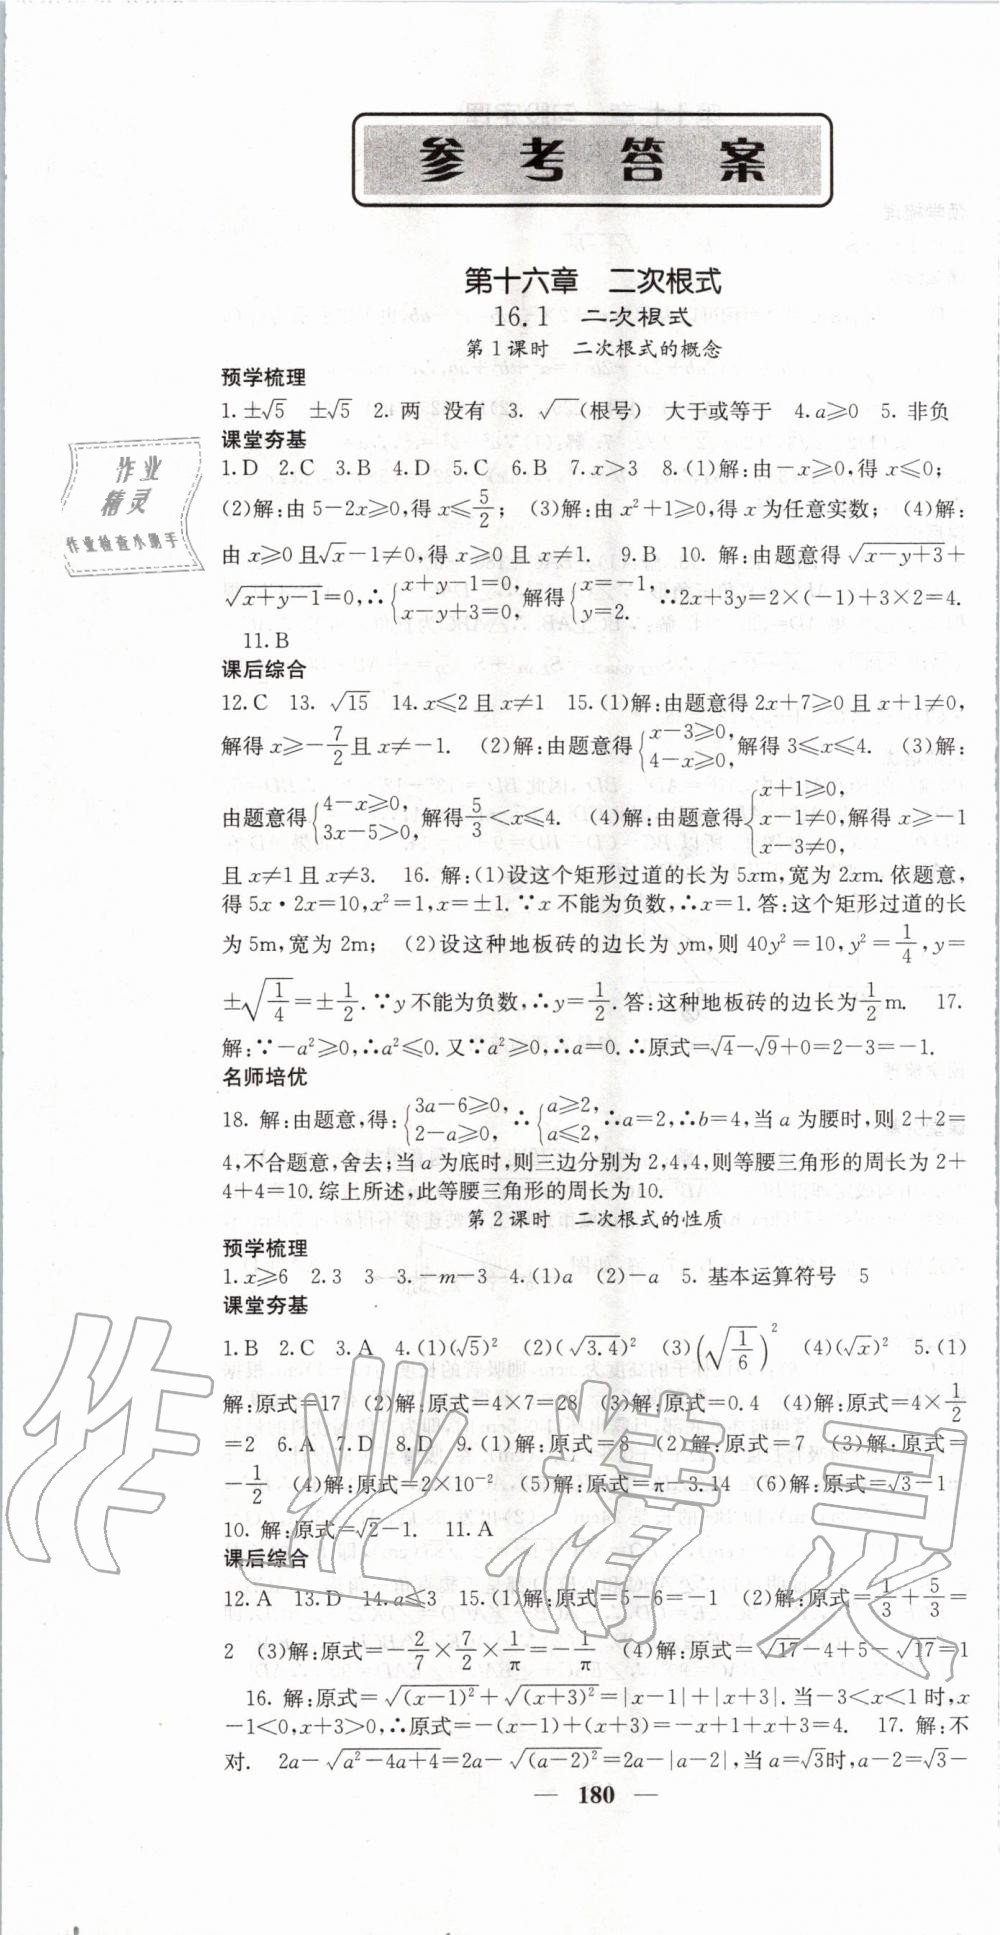 参考答案
第十六章　二次根式
16.1　二次根式
第1课时　二次根式的概念
预学梳理
1.±√5　±√5　2. 两　没有　3. √‾(根号)　大于或等于　4.a≥0　5. 非负
课堂夯基
1.D　2.C　3.B　4.D　5.C　6.B　7.x>3　8.(1)解:由-x≥0,得x≤0;
(2)解:由5-2x≥0,得x≤5/2;　(3)解:由x²+1≥0,得x为任意实数;　(4)解:
由x≥0且√x-1≠0,得x≥0且x≠1.　9.B　10. 解:由题意得√(x-y+3)+
√(x+y-1)=0,∴{x+y-1=0, x-y+3=0, 解得{x=-1, y=2. ∴2x+3y=2×(-1)+3×2=4.
11.B
课后综合
12.C　13. √15　14.x≤2且x≠1　15.(1)解:由题意得2x+7≥0且x+1≠0,
解得x≥-7/2且x≠-1.　(2)解:由题意得{x-3≥0, 4-x≥0, 解得3≤x≤4.　(3)解:
由题意得{4-x≥0, 3x-5>0, 解得5/3<x≤4.　(4)解:由题意得{x+1≥0, x-1≠0, x-3≠0, 解得x≥-1
且x≠1且x≠3.　16. 解:(1)设这个矩形过道的长为5xm,宽为2xm.依题意,
得5x·2x=10,x²=1,x=±1.∵x不能为负数,∴x=1.答:这个矩形过道的长
为5m,宽为2m;　(2)设这种地板砖的边长为ym,则40y²=10,y²=1/4,y=
±√(1/4)=±1/2.∵y不能为负数,∴y=1/2.答:这种地板砖的边长为1/2m.　17.
解:∵-a²≥0,∴a²≤0.又∵a²≥0,∴a=0.∴原式=√4-√9+0=2-3=-1.
名师培优
18. 解:由题意,得:{3a-6≥0, 2-a≥0, ∴{a≥2, a≤2, ∴a=2,∴b=4,当a为腰时,则2+2=
4,不合题意,舍去;当a为底时,则三边分别为2,4,4,则等腰三角形的周长为2+
4+4=10.综上所述,此等腰三角形的周长为10.
第2课时　二次根式的性质
预学梳理
1.x≥6　2.3　3　3.-m-3　4.(1)a　(2)-a　5. 基本运算符号　5
课堂夯基
1.B　2.C　3.A　4.(1)(√5)²　(2)(√3.4)²　(3)(√(1/6))²　(4)(√x)²　5.(1)
解:原式=17　(2)解:原式=4×7=28　(3)解:原式=0.4　(4)解:原式=4×1/2
=2　6.A　7.D　8.D　9.(1)解:原式=8　(2)解:原式=7　(3)解:原式=
-1/2　(4)解:原式=2×10⁻²　(5)解:原式=π-3.14　(6)解:原式=√3-1
10. 解:原式=√2-1.　11.A
课后综合
12.A　13.D　14.a≤3　15.(1)解:原式=5-6=-1　(2)解:原式=1/3+5/3=
2　(3)解:原式=-2/7×7/2×1/π=-1/π　(4)解:原式=√17-4+5-√17=1
16. 解:原式=√((x-1)²)+√((x+3)²)=|x-1|+|x+3|.当-3<x<1时,x
-1<0,x+3>0,∴原式=-(x-1)+(x+3)=-x+1+x+3=4.　17. 解:不
对.　2a-√(a²-4a+4)=2a-√((a-2)²)=2a-|a-2|,当a=√3时,a-2=√3-
— 180 —
作业
精灵
作业检查小助手
作业精灵